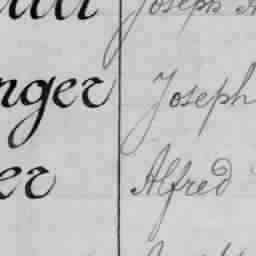 Joseph
nger Joseph
er Alfred